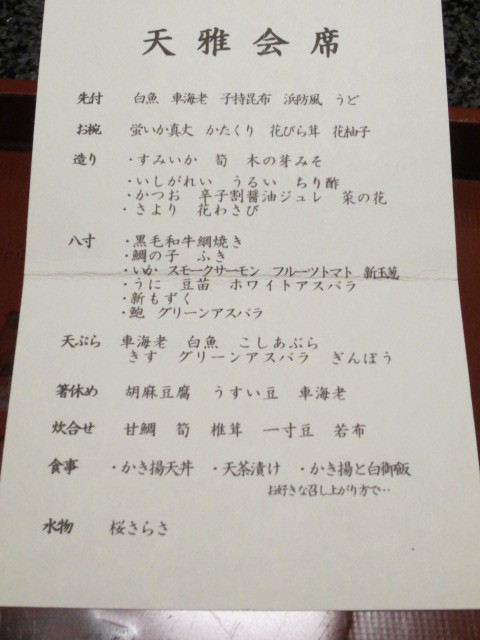 天雅会席
先付 白魚 車海老 子持昆布 浜防風 うど
お椀 蛍いか真丈 かたくり 花びら茸 花柚子
造り ・すみいか 筍 木の芽みそ
・いしがれい うるい ちり酢
・かつお 辛子割醤油ジュレ 菜の花
・さより 花わさび
八寸 ・黒毛和牛網焼き
・鯛の子 ふき
・いか スモークサーモン フルーツトマト 新玉葱
・うに 豆苗 ホワイトアスパラ
・新もずく
・鮑 グリーンアスパラ
天ぷら 車海老 白魚 こしあぶら
きす グリーンアスパラ ぎんぽう
箸休め 胡麻豆腐 うすい豆 車海老
炊合せ 甘鯛 筍 椎茸 一寸豆 若布
食事 ・かき揚天丼 ・天茶漬け ・かき揚と白御飯
お好きな召し上がり方で‥
水物 桜さらさ